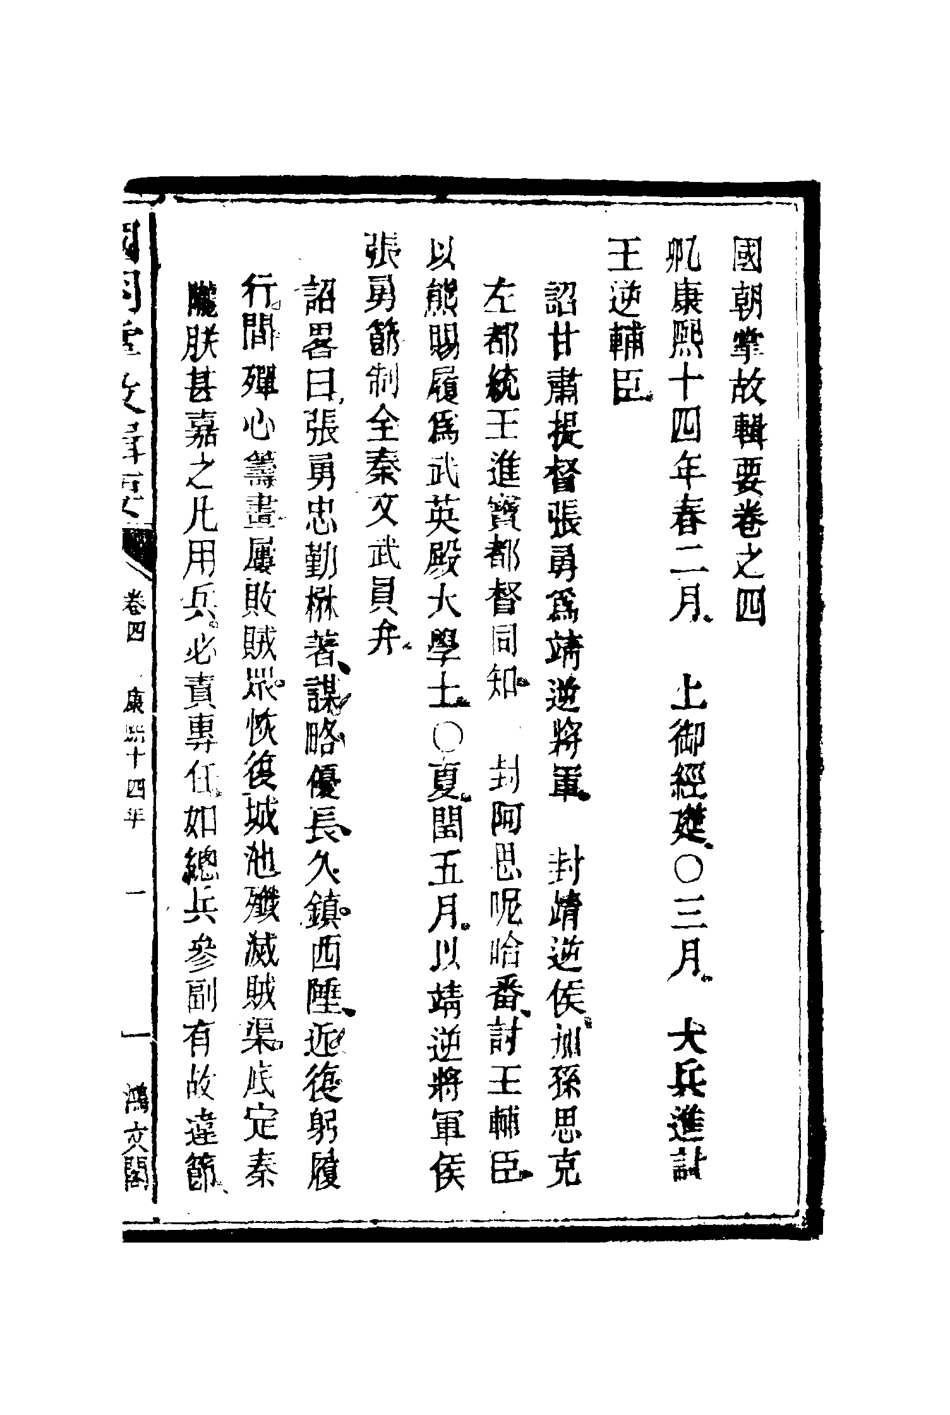 國朝掌故輯要卷之四
乳康熙十四年春二月、　上御經筵、〇三月。　大兵進討
王逆輔臣。
詔甘肅提督張勇爲靖逆將軍。　封靖逆侯。加孫思克
左都統王進寶都督同知。　封阿思呢哈番、討王輔臣。
以熊賜履爲武英殿大學士。〇夏。閏五月。以靖逆將軍侯
張勇節制全秦文武員弁。
詔畧曰、張勇忠勤楙著、謀略優長、久鎮西陲、近復躬履
行間。殫心籌畫。屢敗賊眾。恢復城池。殲滅賊渠。底定秦
隴。朕甚嘉之。凡用兵。必責專任。如總兵參副有故違節、
國朝掌故輯要
卷四　康熙十四年　一
鴻文閣